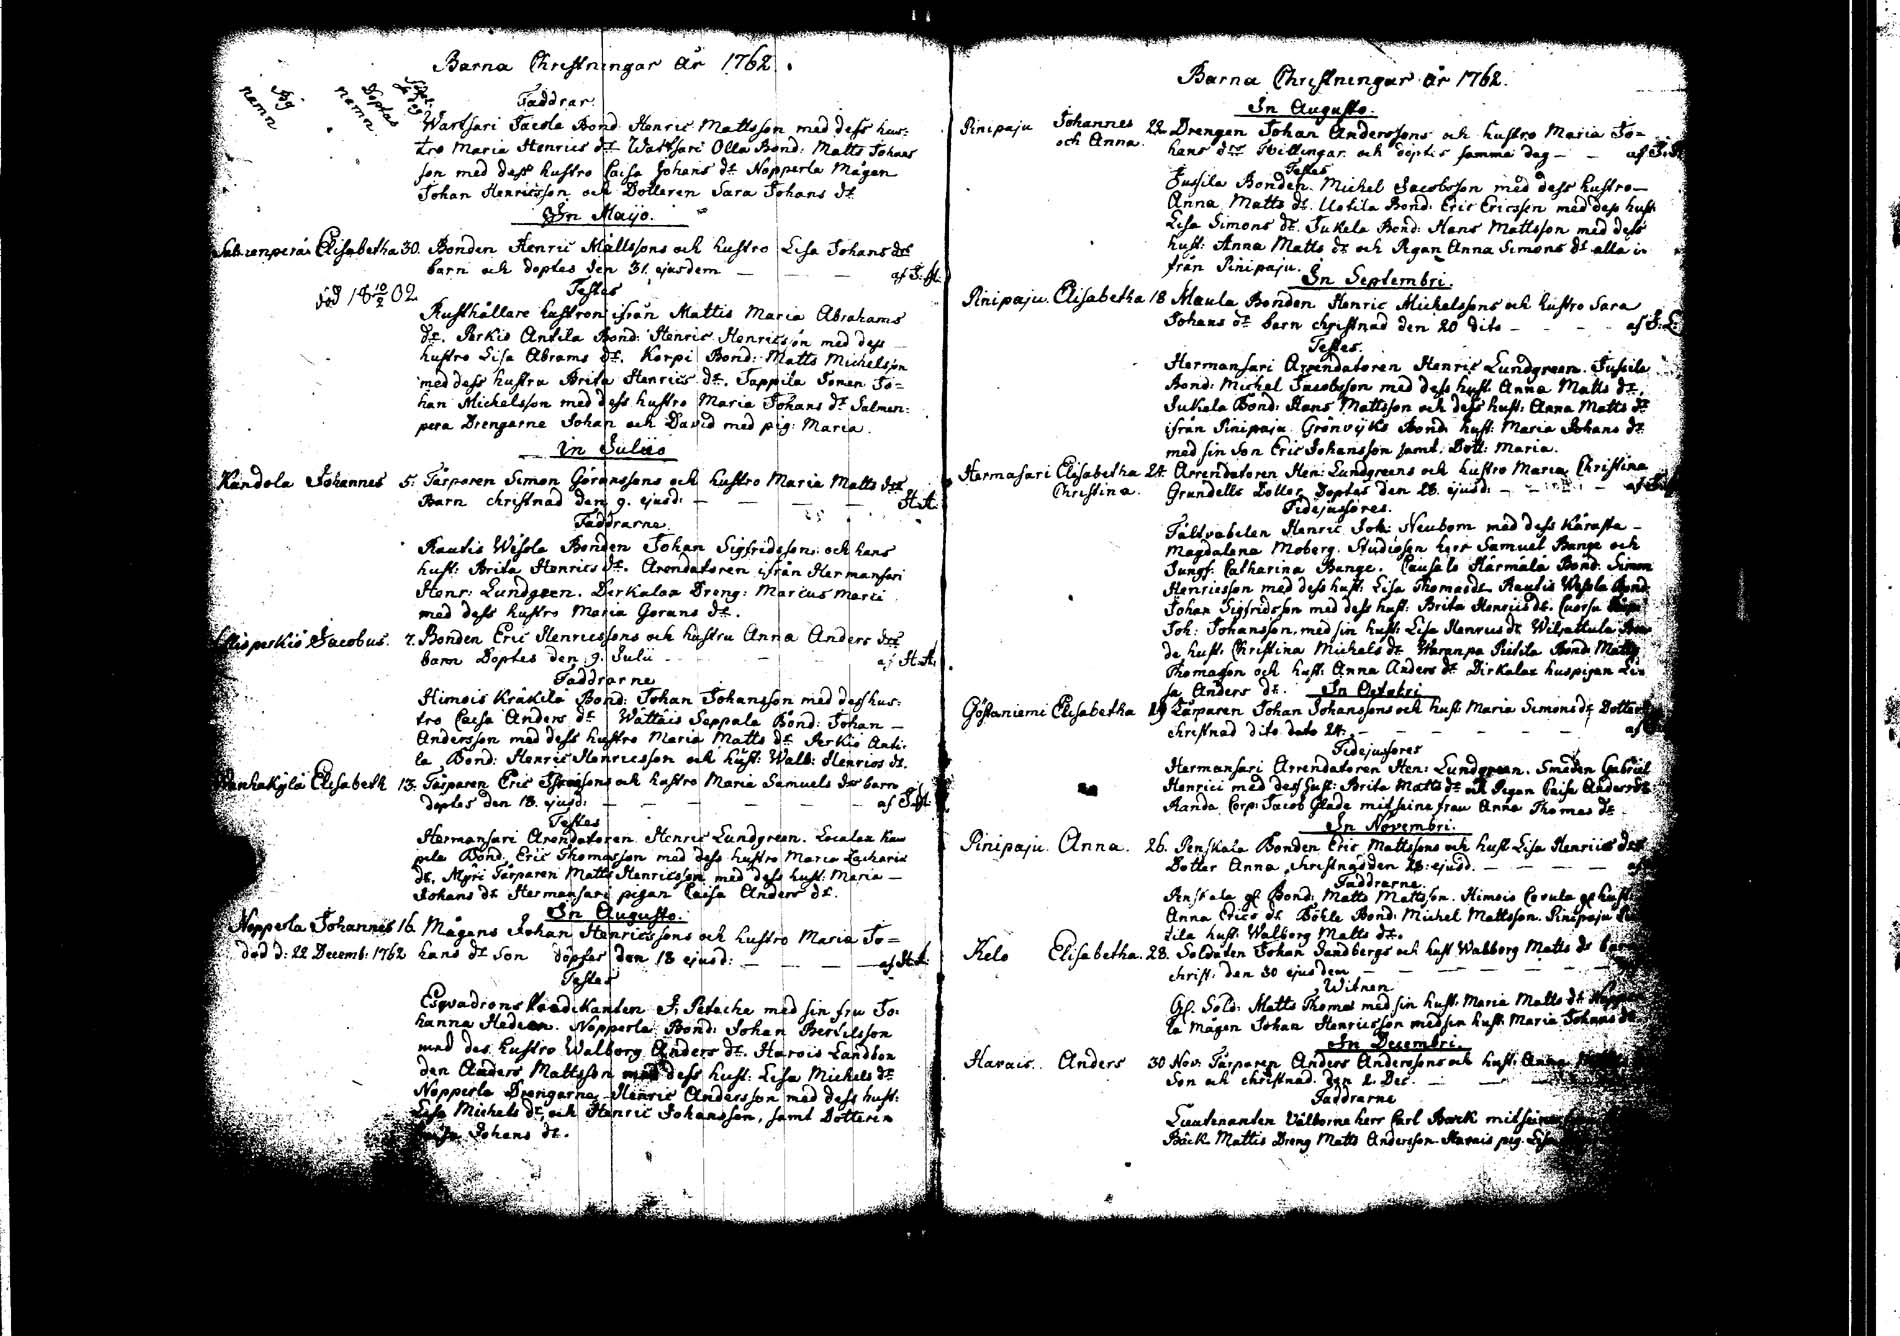 Barna Christningar år 1762.
By namn
Doptas namn
Faddrar.
Wartsari Jacola Bond. Henric Mattsson med dess hus:
tro Maria Henrics dr. Wartsari Olla Bond: Matts Johans
son med dess hustro Caisa Johans dr. Nopperla Mågen
Johan Henricsson och Dotteren Sara Johans dr.
In Mayo.
Salmenperä Elisabetha 30. Bonden Henric Mattssons och hustro Lisa Johans drs
barn och doptes den 31. ejusdem — — — af
död 18 10/2 02
Testes
Rusthållare hustron ifrån Mattis Maria Abrahams
dr. Perkio Antila Bond: Henric Henricsson med dess
hustro Lisa Abrams dr. Korpi Bond: Matts Michelsson
med dess hustru Brita Henrics dr. Tappila Sonen Jo=
han Michelsson med dess hustro Maria Johans dr. Salmen:
pera Drengarne Johan och David med pig: Maria.
in Julio
Kándola Johannes 5. Tårparen Simon Göranssons och hustro Maria Matts drs
Barn christnad den 9. ejusd: — — — — H.A.
Faddrarne.
Rautis Wesola Bonden Johan Sigfridsson och hans
hust: Brita Henrics dr. Arendatoren ifrån Hermansari
Henr: Lundgren. Dirkalax Dreng: Marcus Marci
med dess hustro Maria Gorans dr.
Jacobus. 7. Bonden Eric Henricssons och hustru Anna Anders drs
barn Doptes den 9. Julii — — — af H.A.
Faddrarne
Himois Kräkilä Bond: Johan Johansson med des hus:
tro Caisa Anders dr Wáttáis Seppala Bond: Johan —
Andersson med dess hustro Maria Matts dr Perkio Anti:
la Bond: Henric Henricsson och hust: Walb: Henrics dr.
Wanhakylä Elisabeth 13. Tårparen Eric sons och hustro Maria Samuels drs barn
doptes den 18. ejusd: — — — — af
Testes
Hermansari Arendatoren Henric Lundgreen. Localax
pila Bond. Eric Thomasson med dess hustro Maria Zacharie
dr. Myri Tårparen Matts Henricsson med dess hust: Maria —
Johans dr Hermansari pigan Caisa Anders dr.
In Augusto.
Nopperla Johannes 16. Mågens Johan Henricssons och hustro Maria Jo=
död d: 22 Decemb: 1762 hans dr Son döptes den 18 ejusd: — — — af H.A.
Testes
Esqvadrons Predikanten J. Petsche med sin fru Jo:
hanna Nopperla Bond: Johan Bertilsson
med des hustro Walborg Anders dr. Harois Landbon
den Anders Mattsson med dess hust: Lisa Michels dr
Nopperla Drengarne Henric Andersson med dess hust:
Lisa Michels dr, och Henric Johansson, samt Dotteren
Johans dr.
Barna Christningar år 1762.
In Augusto.
Pinipaju Johannes 22. Drengen Johan Anderssons och hustro Maria Jo=
och Anna. hans drs Tvillingar och döptes samma dag — — af
Testes
Jussila Bonden. Michel Jacobsson med dess hustro —
Anna Matts dr. Uotila Bond: Eric Ericsson med dess hust:
Lisa Simons dr. Jukala Bond: Hans Mattsson med dess
hust: Anna Matts dr och Pigan Anna Simons dr alla i
från Pinipaju.
In Septembri.
Pinipaju. Elisabetha 18 Maula Bonden Henric Michelssons och hustro Sara
Johans drs barn christnad den 20 dito — — — — af
Testes.
Hermansari Arrendatoren Henric Lundgreen. Jussila
Bond: Michel Jacobsson med dess hust. Anna Matts dr.
Jukala Bond: Hans Mattsson och dess hust: Anna Matts dr
ifrån Pinipaju. Grönvijks Bond: hust: Maria Johans dr
med sin Son Eric Johansson samt. Dott: Maria.
Hermasari Elisabetha 24. Arrendatoren Hen: Lundgreens och hustro Maria Christina
Christina. Grundells Dotter Doptes den 28. ejusd: — — — — af
Fidejussores.
Fältvabelen Henric Joh: Neuborn med dess Kärasta —
Magdalena Moberg. Studiosen herr Samuel Bange och
Jungf. Catharina Bange. Causalo Härmälä Bond: Simon
Henricsson med dess hust: Lisa Thomas dr. Rautis Wesola Bond
Johan Sigfridsson med dess hust: Brita Henrics dr.
Joh: Johansson. med sin hust: Lisa Henrics dr
de hust: Christina Michels dr Waranpa Pietila Bond: Matts
Thomasson och hust: Anna Anders dr Dirkalax huspigan Li
sa Anders dr.
In Octobri
Göstaniemi Elisabetha 19 Tårparen Johan Johanssons och hust: Maria Simons dr. Dotter
christnad dito dato 24. — — — — — — af
Fidejussores
Hermansari Arrendatoren Hen: Lundgreen. Smeden Gabriel
Henrici med dess hust: Brita Matts dr och Pigan Caisa Anders dr.
Randa Corp: Jacob Glade mit seine frau Anna Thomas dr
In Novembri.
Pinipaju. Anna. 26. Penskala Bonden Eric Mattssons och hust Lisa Henrics drs
Dotter Anna christnad den 28. ejusd. — — —
Faddrarne.
Penskala gl Bond: Matts Mattsson. Himois gl hust:
Anna Erics dr Böhle Bond: Michel Mattsson. Pinipaju
tila hust: Walborg Matts dr.
Kelo Elisabetha. 28. Soldaten Johan Sandbergs och hust Walborg Matts drs barn
christ: den 30 ejusdem — — — — — —
Witnen
Gl. Sold: Matts Thomas med sin hust: Maria Matts dr Nopper
la Mågen Johan Henricsson med sin hust: Maria Johans dr
In Decembri.
Havais. Anders 30 Nov: Tårparen Anders Anderssons och hust: Anna
Son och christnad. den 2. Dec. — —
Faddrarne
Lieutenanten Välborne herr Carl mit seine
Bäck Mattis Dreng Matts Andersson Havais pig. Lisa